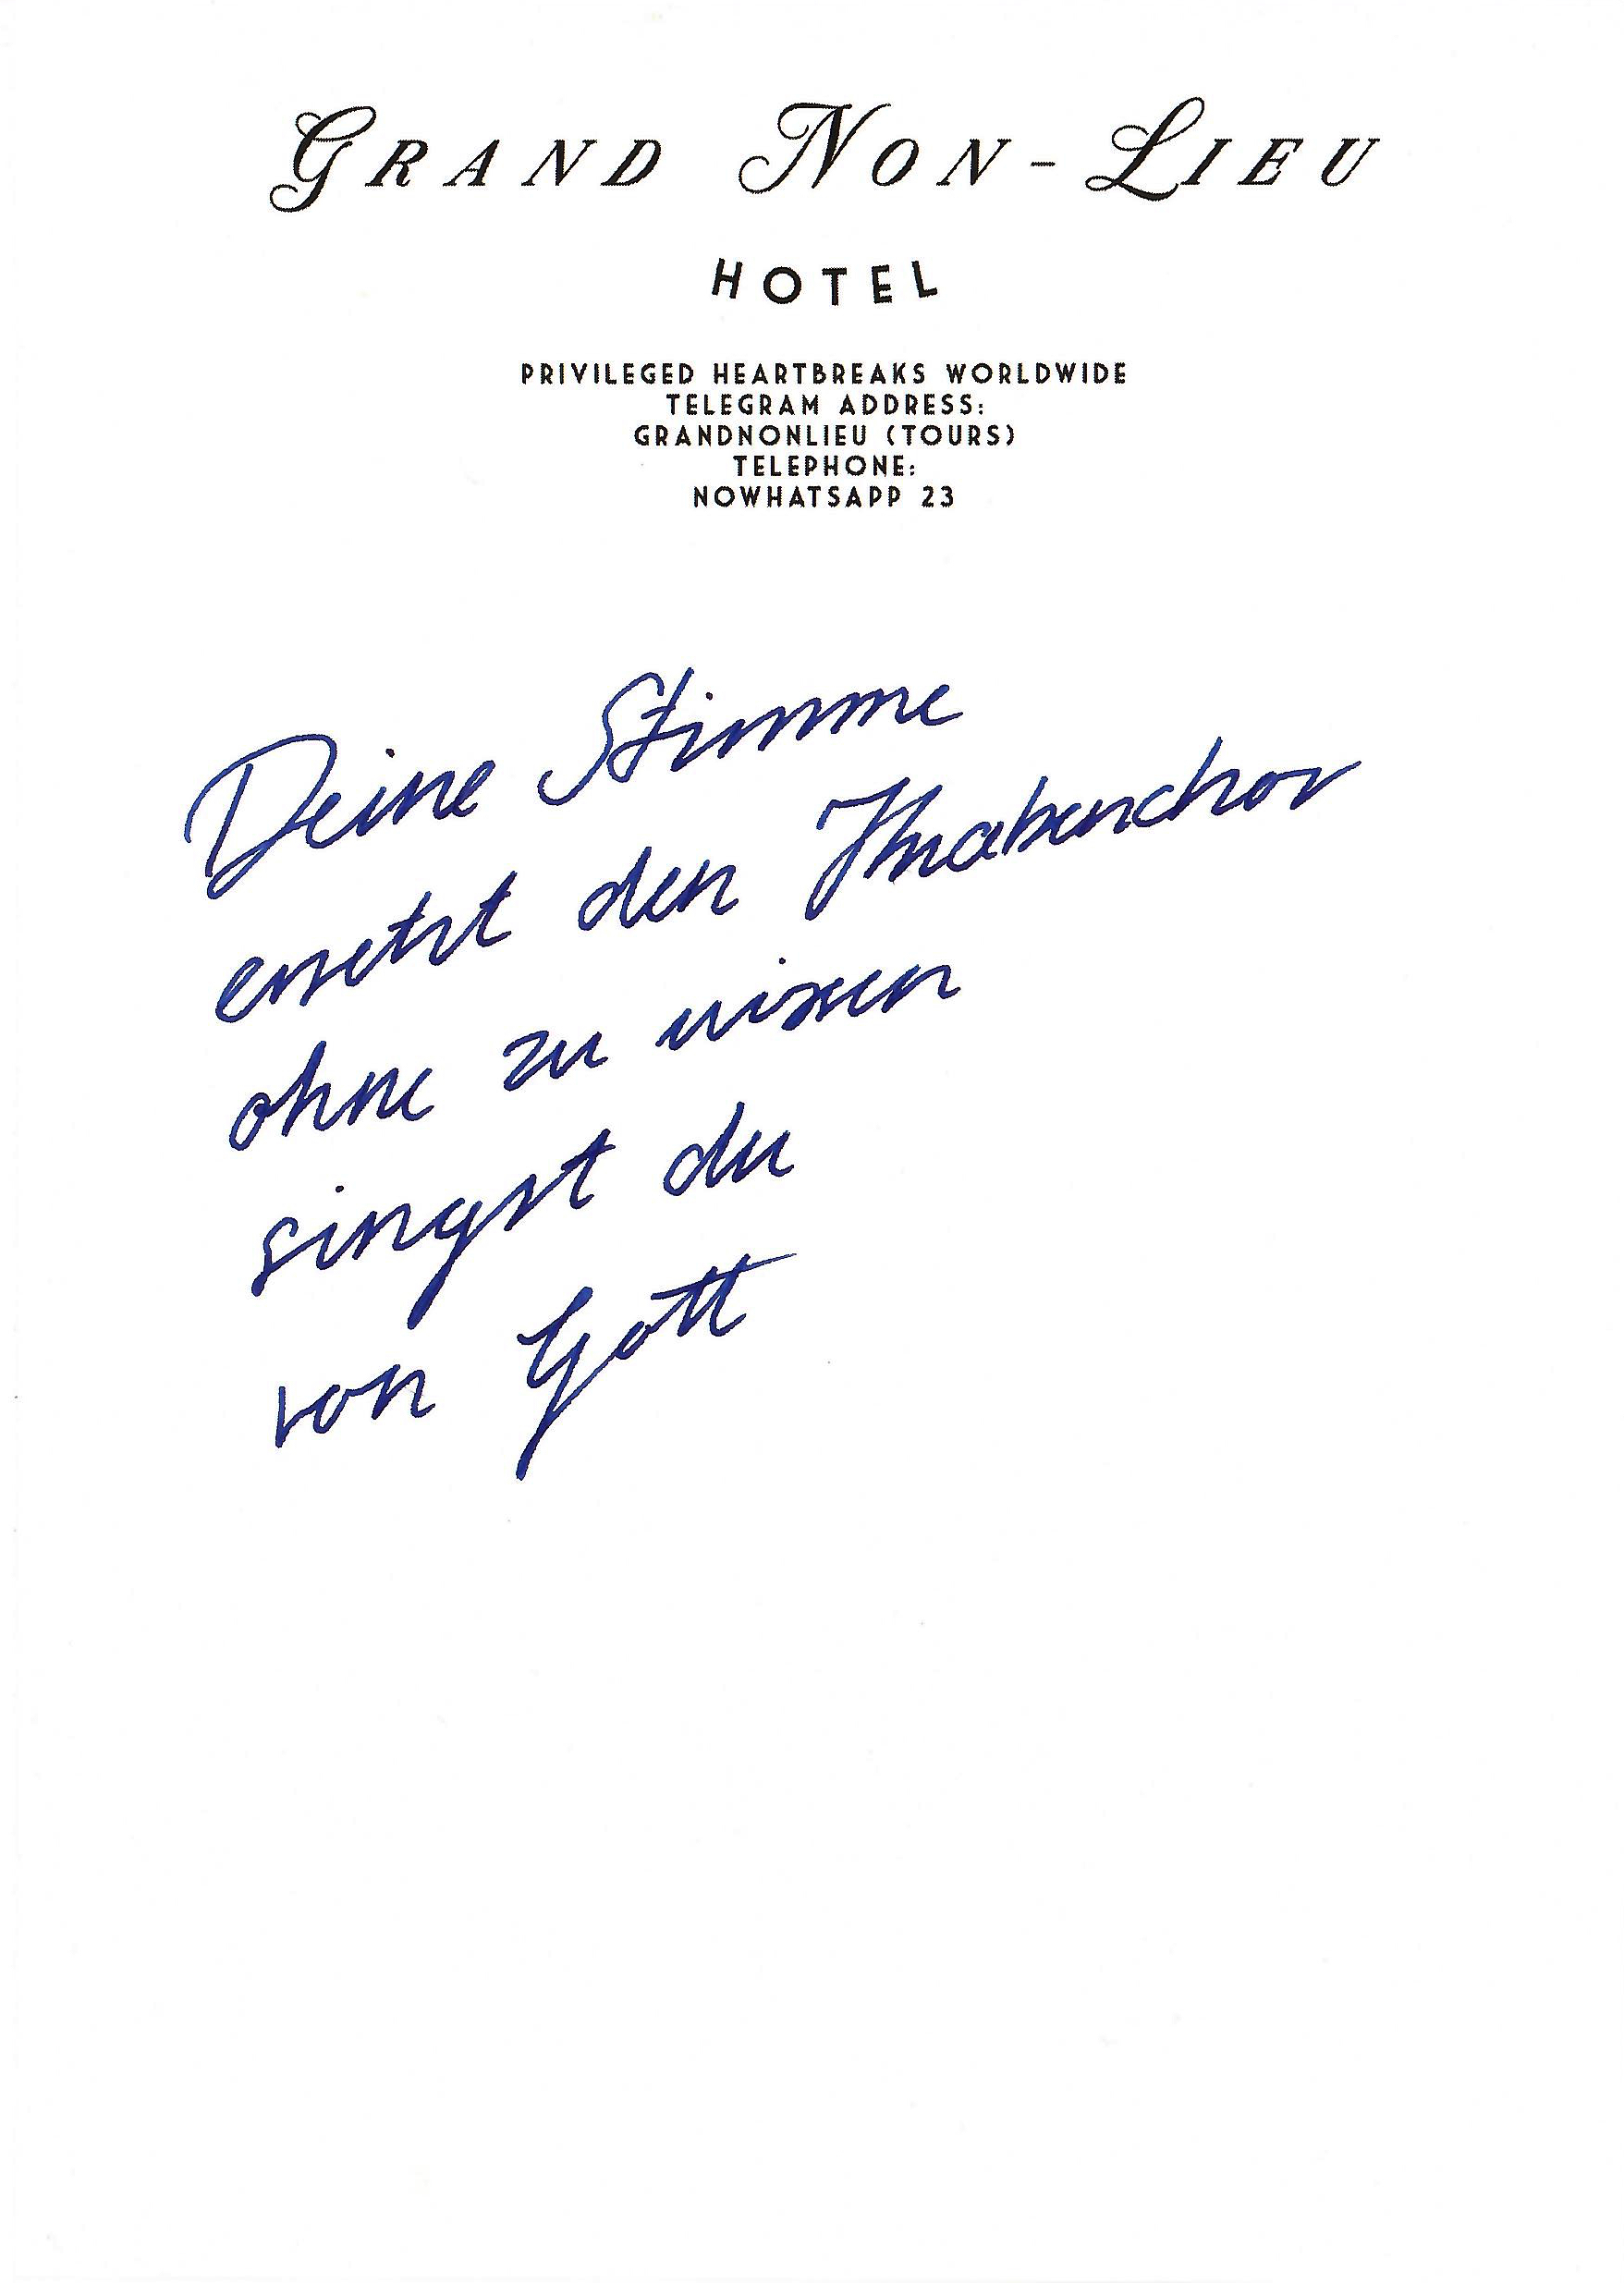 GRAND NON-LIEU
HOTEL
PRIVILEGED HEARTBREAKS WORLDWIDE
TELEGRAM ADDRESS:
GRANDNONLIEU (TOURS)
TELEPHONE:
NOWHATSAPP 23
Deine Stimme
ersetzt den Knabenchor
ohne zu wissen
singst du
von Gott